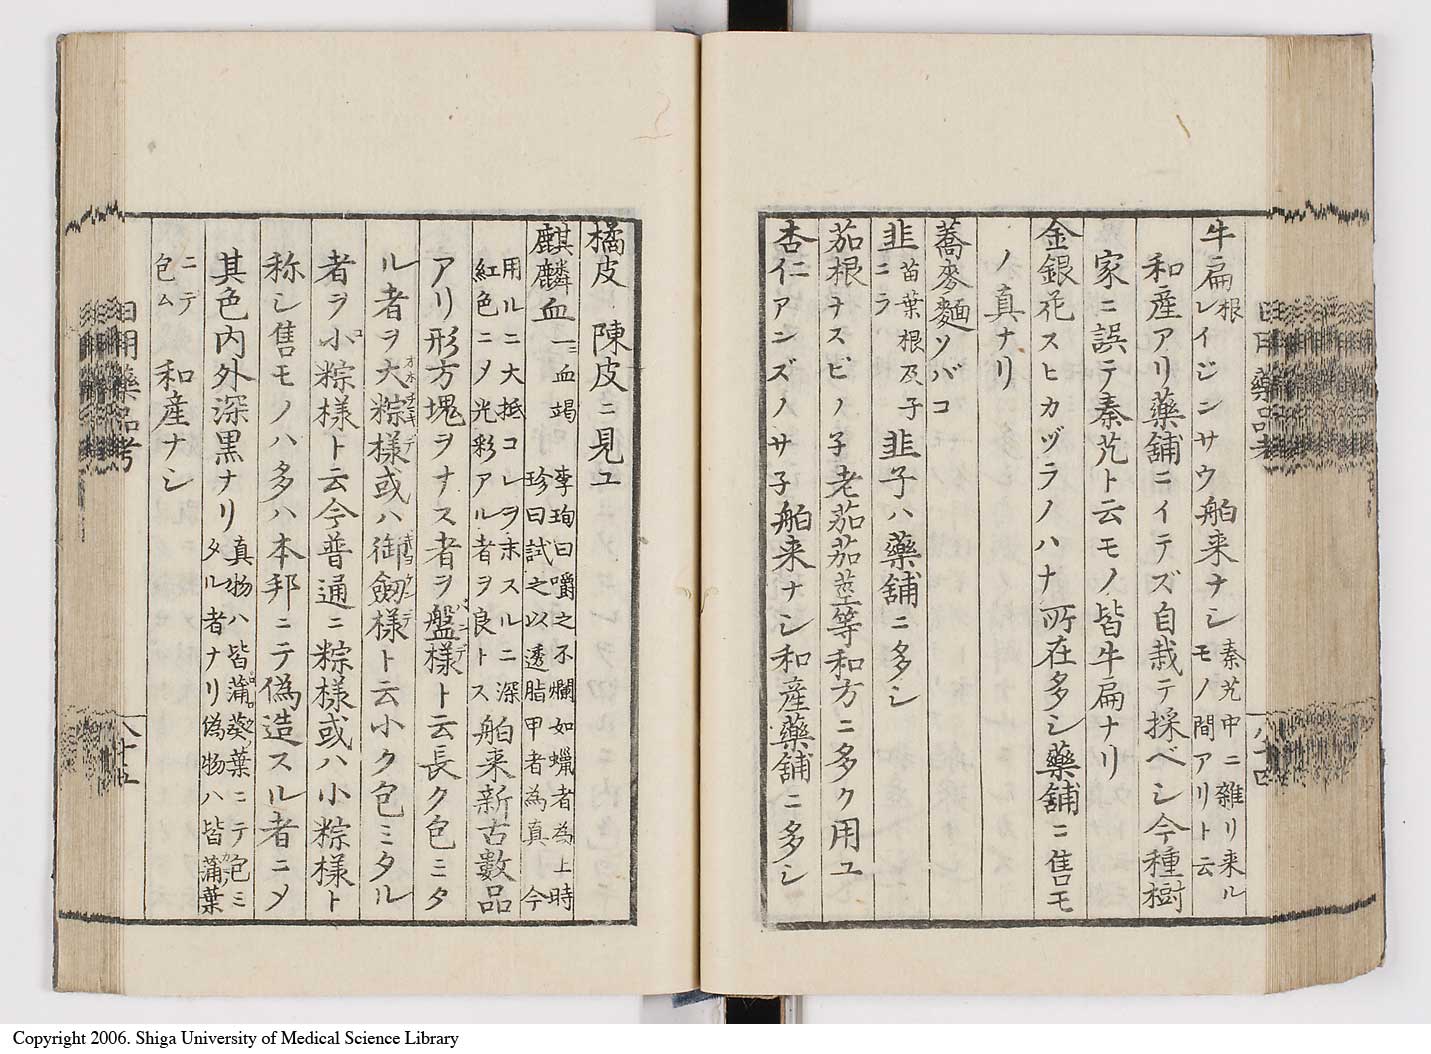 牛扁根レイジンサウ舶来ナシ秦艽中ニ雑リ来ルモノ間アリト云
和産アリ薬舗ニイテズ自栽テ採ベシ今種樹
家ニ誤テ秦艽ト云モノ皆牛扁ナリ
金銀花スヒカヅラノハナ所在多シ薬舗ニ售モ
ノ真ナリ
蕎麥麵ソバコ
韭ニラ苗葉根及子韭子ハ藥舗ニ多シ
茄根ナスビノ子老茄茄莖等和方ニ多ク用ユ
杏仁アンズノサ子舶来ナシ和産藥舗ニ多シ
橘皮 陳皮ニ見ユ
麒麟血一ニ血竭李珣曰嚼之不爛如蠟者為上時珍曰試之以透脂甲者為真今
用ルニ大抵コレヲホスルニ深紅色ニメ光彩アル者ヲ良トス舶来新古數品
アリ形方塊ヲナス者ヲ盤様ト云長ク包ミタ
ル者ヲ大粽様或ハ御劔様ト云小ク包ミタル
者ヲ小粽様ト云今普通ニ粽様或ハ小粽様ト
称シ售モノハ多ハ本邦ニテ偽造スル者ニメ
其色内外深黒ナリ真物ハ皆蒲葵葉ニテ包ミタル者ナリ偽物ハ皆蒲葉
ニテ包ム 和産ナシ
日用藥品考
Copyright 2006. Shiga University of Medical Science Library